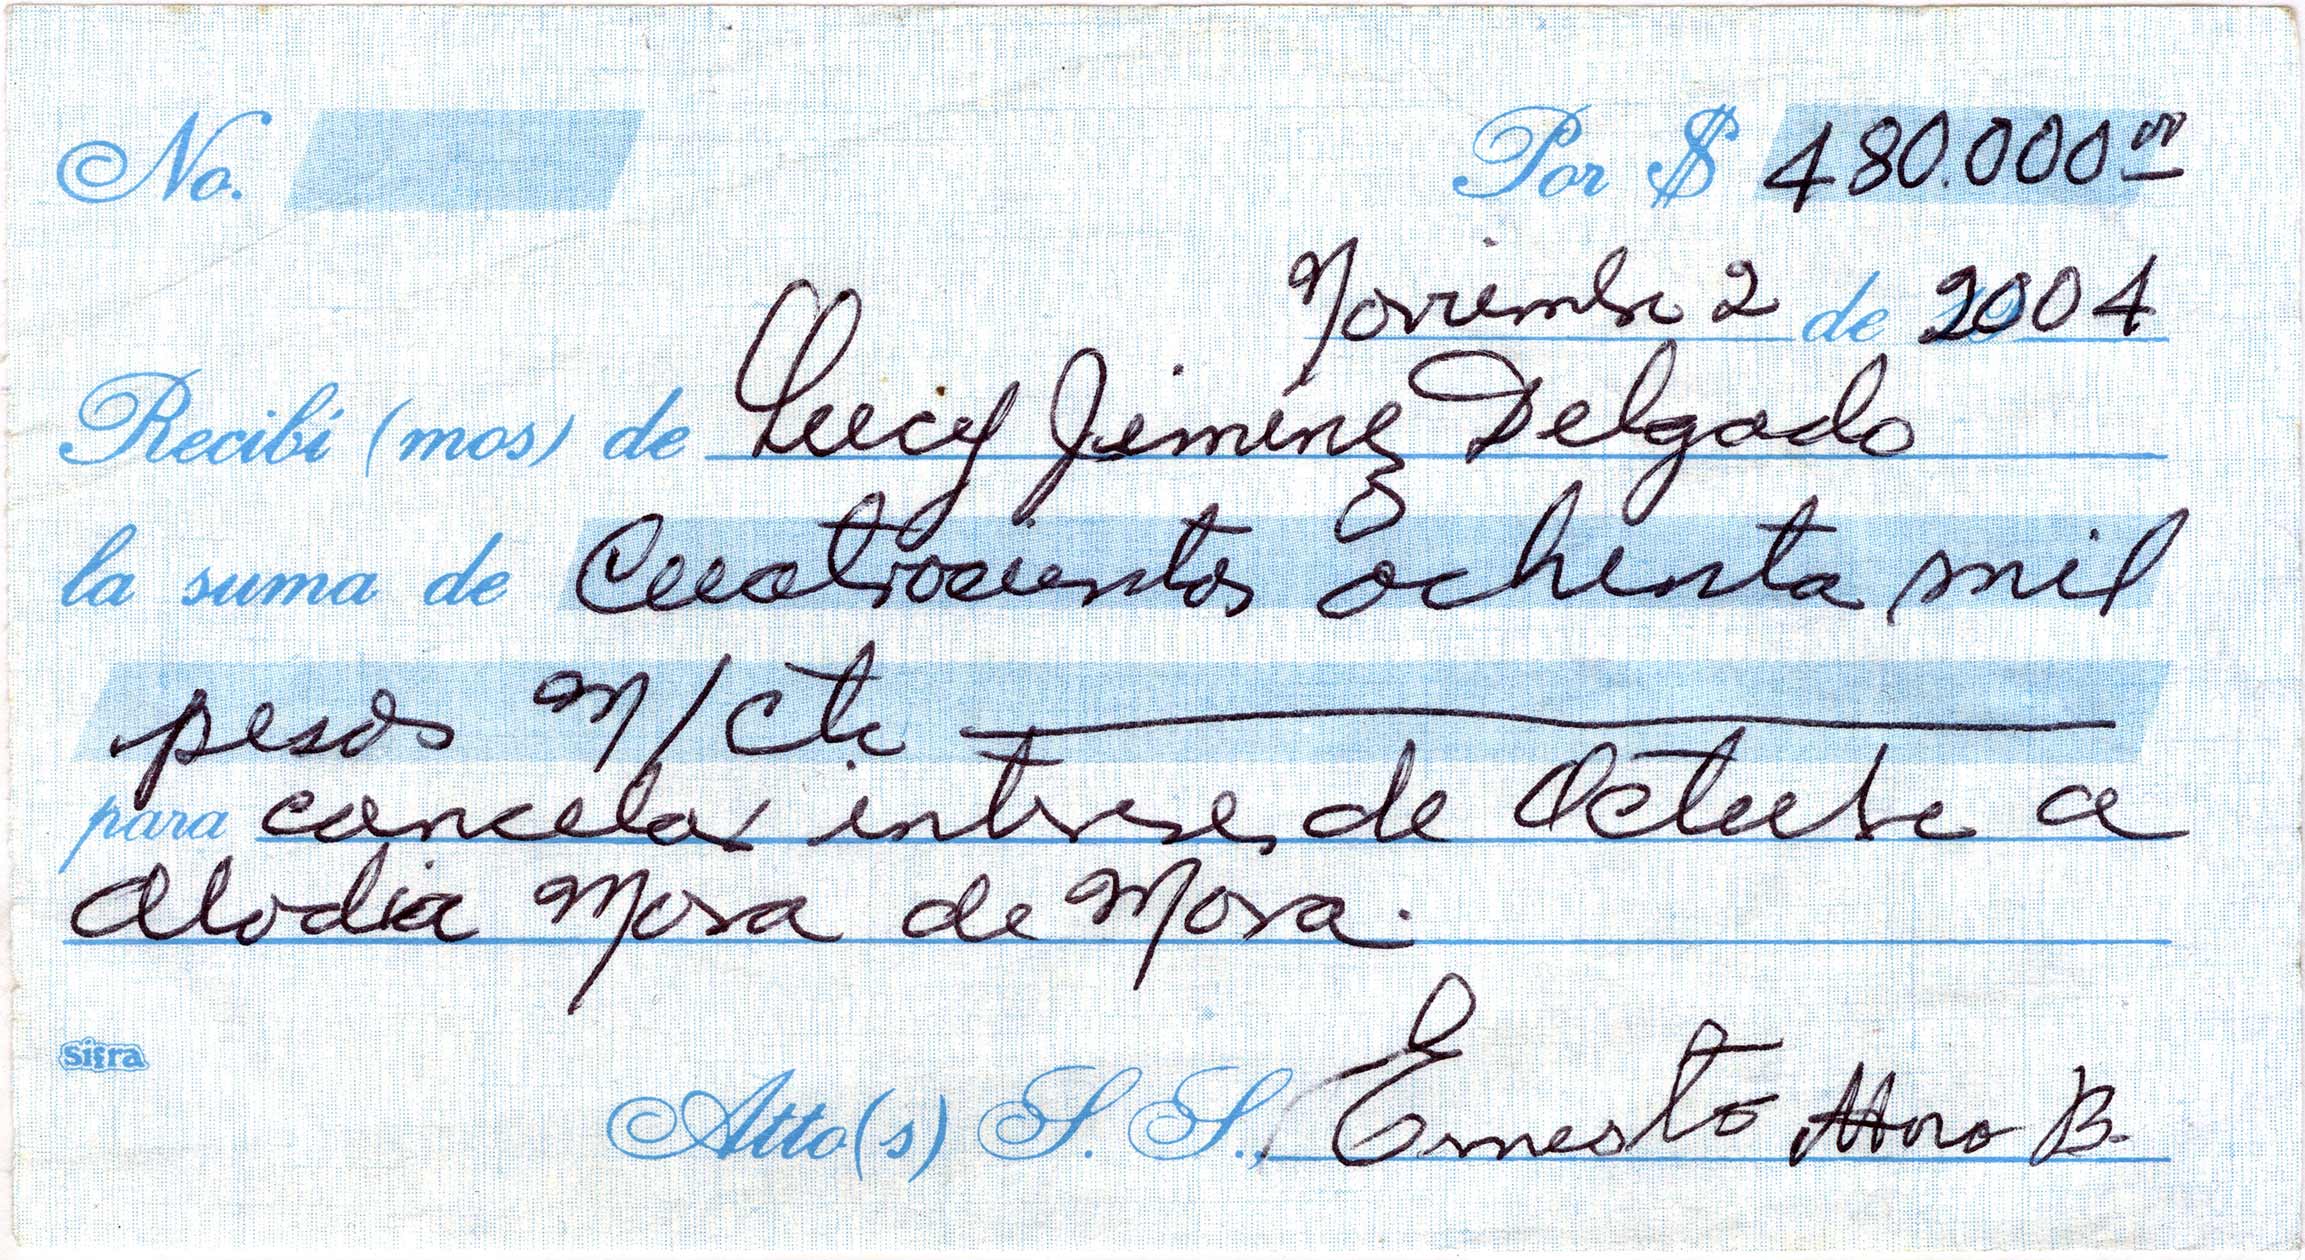 No. Por $ 480.000 00
Noviembre 2 de 2004
Recibí (mos) de Lucy Jimenez Delgado
la suma de Cuatrocientos ochenta mil
pesos M/cte
para cancelar intereses de Octubre a
Alodia Mora de Mora.
sifra
Atto(s) S. S., Ernesto Mora B.